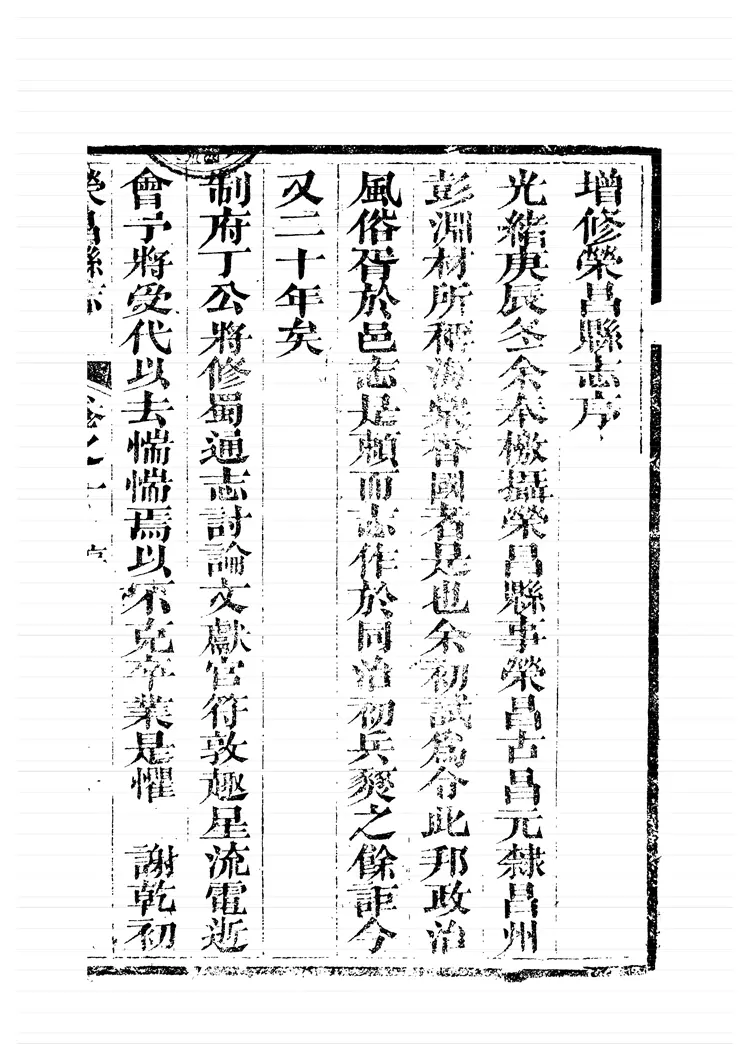 增修榮昌縣志序
光緒庚辰冬余奉檄攝榮昌縣事榮昌古昌元隸昌州
彭淵材所稱海棠香國者是也余初試為令此邦政治
風俗胥於邑志是賴而志作於同治初兵燹之餘距今
又二十年矣
制府丁公將修蜀通志討論文獻官符敦趣星流電逝
會予將受代以去惴惴焉以不克卒業是懼 謝乾初
榮昌縣志 卷之一